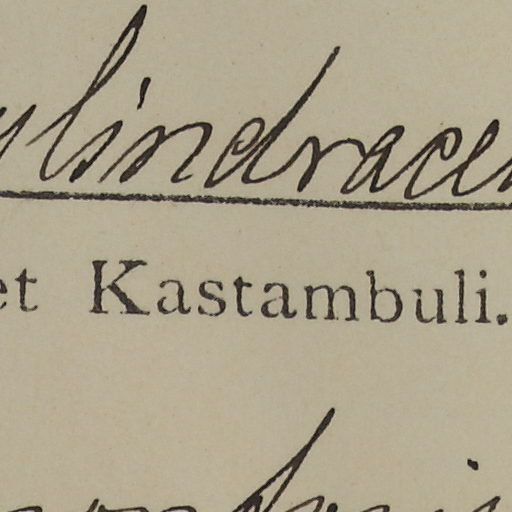 ylindrace
et Kastambuli.